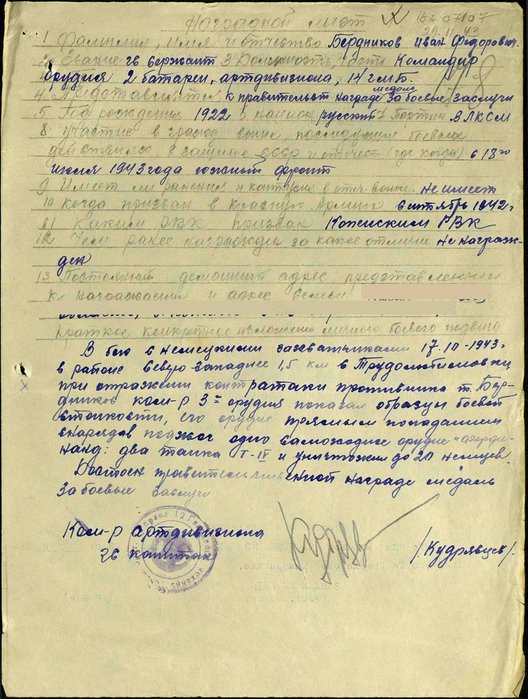 Наградной лист
1 Фамилия, имя и отчество Бердников Иван Федорович
2 Звание гв сержант 3 Должность, часть Командир
орудия 2 батареи, артдивизиона, 14 гмб
4 Представляется к правительст награде медаль За боевые заслуги
5 Год рождения 1922 6 национ русский 7 Партин ВЛКСМ
8 Участие в гражд войне, последующих боевых
действиях в защите СССР и отечест (где когда) с 18го
июля 1943 года южный фронт
9 Имеет ли ранения и контузии в отеч. войне не имеет
10 Когда призван в Красную Армию сентябрь 1942г.
11 Каким РВК призван РВК
12 Чем ранее награжден за какое отличие не награж-
ден
13 Постоянный домашний адрес представляемого
к награждению и адрес семьи
Краткое конкретное изложение личного боевого подвига
В бою с немецкими захватчиками 17-10-1943г
в районе северо западнее 1,5 км с
при отражении контратаки противника т. Бер-
дников ком-р 3го орудия показал образцы боевой
стойкости, его орудие прямым попаданием
снарядов поджог одно самоходное орудие
нанд: два танка Т-IV и уничтожен до 20 немцев.
Достоин правительственной награде медаль
За боевые заслуги
Ком-р артдивизиона
гв капитан /Кудрявцев/